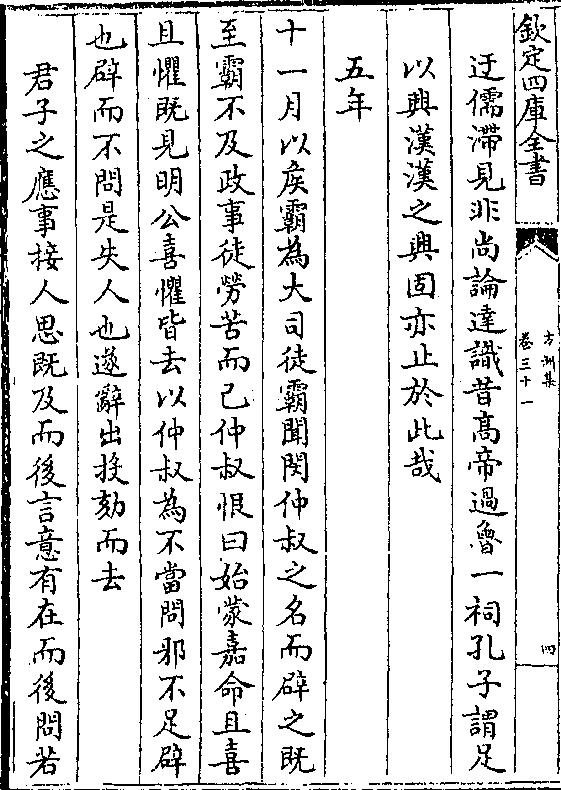 欽定四庫全書
方洲集
卷三十一
四
迂儒滯見非尚論達識昔髙帝過魯一祠孔子謂足
以興漢漢之興固亦止於此哉
五年
十一月以侯霸為大司徒霸聞閔仲叔之名而辟之既
至霸不及政事徒勞苦而已仲叔恨曰始蒙嘉命且喜
且懼既見明公喜懼皆去以仲叔為不當問邪不足辟
也辟而不問是失人也遂辭出投劾而去
君子之應事接人思既及而後言意有在而後問若